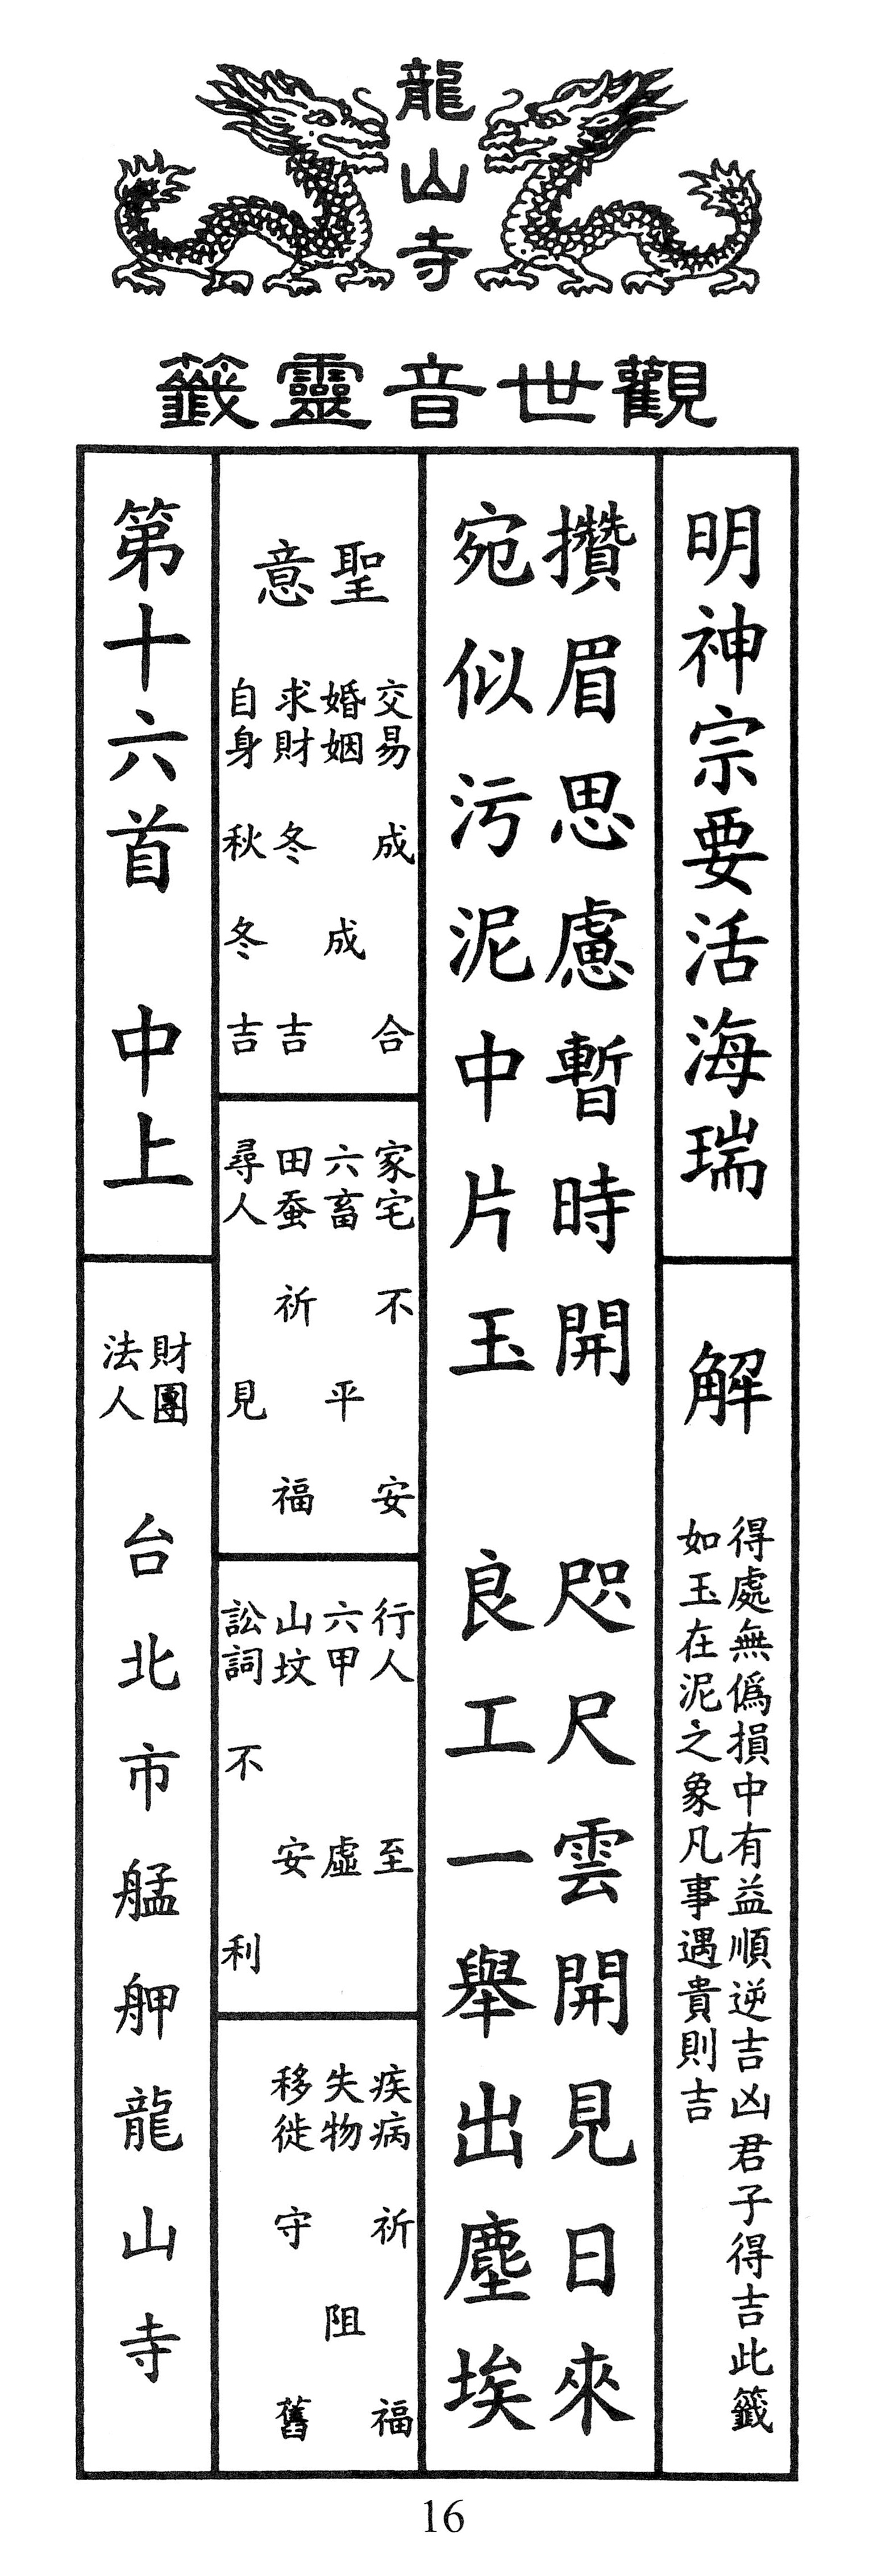 龍山寺
觀世音靈籤
明神宗要活海瑞
解
得處無偽損中有益順逆吉凶君子得吉此籤
如玉在泥之象凡事遇貴則吉
攢眉思慮暫時開 咫尺雲開見日來
宛似污泥中片玉 良工一舉出塵埃
聖意
交易 成合
婚姻 成
求財 冬吉
自身 秋冬吉
家宅 不安
六畜 平
田蚕 祈福
尋人 見
行人 至
六甲 虛
山坟 安
訟詞 不利
疾病 祈福
失物 阻
移徙 守舊
第十六首 中上
財團法人 台北市艋舺龍山寺
16